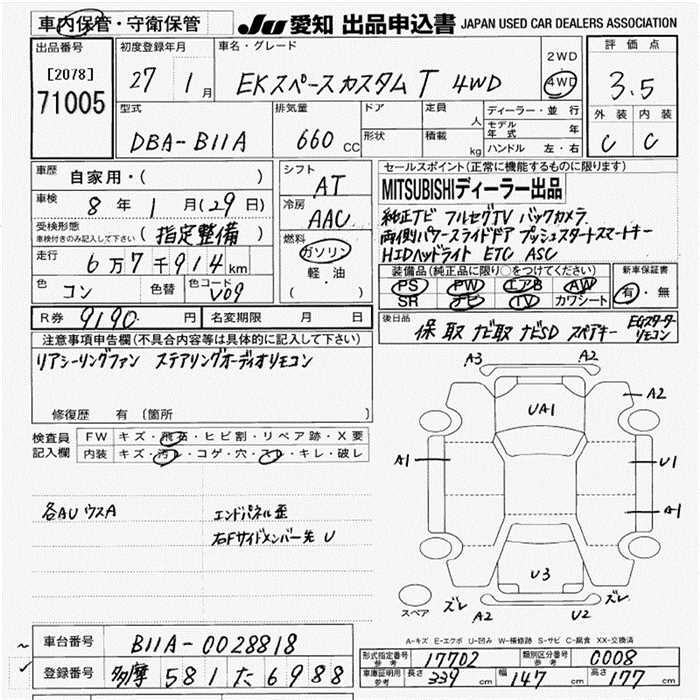 車内保管・守衛保管
JU 愛知 出品申込書 JAPAN USED CAR DEALERS ASSOCIATION
出品番号
[2078]
71005
初度登録年月
27 1月
車名・グレード
EKスペースカスタム T 4WD
2WD
4WD
評価点
3.5
外装 内装
C C
型式
DBA-B11A
排気量
660 CC
ドア
形状
定員
人
積載
kg
ディーラー・並行
モデル年式 年
ハンドル 左・右
車歴
自家用・( )
車検
8年 1月(29日)
受検形態
車検付きのみ記入して下さい
(指定整備)
走行
6万7千914km
色
コン
色替
色コード
V09
シフト
AT
冷房
AAC
燃料
ガソリン
軽・油
( )
セールスポイント(正常に機能するものに限ります)
MITSUBISHIディーラー出品
純正ナビ フルセグTV バックカメラ
両側パワースライドドア プッシュスタートスマートキー
HIDヘッドライト ETC ASC
装備品(純正品に限り○をつけてください)
PS PW エアB AW
SR ナビ TV カワシート
新車保証書
有・無
R券 9190円
名変期限 月 日
後日品
保 取 ナビ取 ナビSD スペアキー EGスターターリモコン
注意事項申告欄(不具合内容等は具体的に記入して下さい)
リアシーリングファン ステアリングオーディオリモコン
修復歴 有〔箇所
検査員記入欄
FW キズ・飛石・ヒビ割・リペア跡・X要
内装 キズ・汚レ・コゲ・穴・スレ・キレ・破レ
各AUウスA
エンドパネル歪
右Fサイドメンバー先 U
A3 A2
UA1
A2
A1
U1
A1
U3
ズレ
ズレ
スペア
A2
U2
A-キズ E-エクボ U-凹み W-補修跡 S-サビ C-腐食 XX-交換済
車台番号
B11A-0028818
登録番号
多摩 581 た 6988
形式指定番号
参考
17702
類別区分番号
参考
0008
車両証明用
参考
長さ 339 cm
幅 147 cm
高さ 177 cm